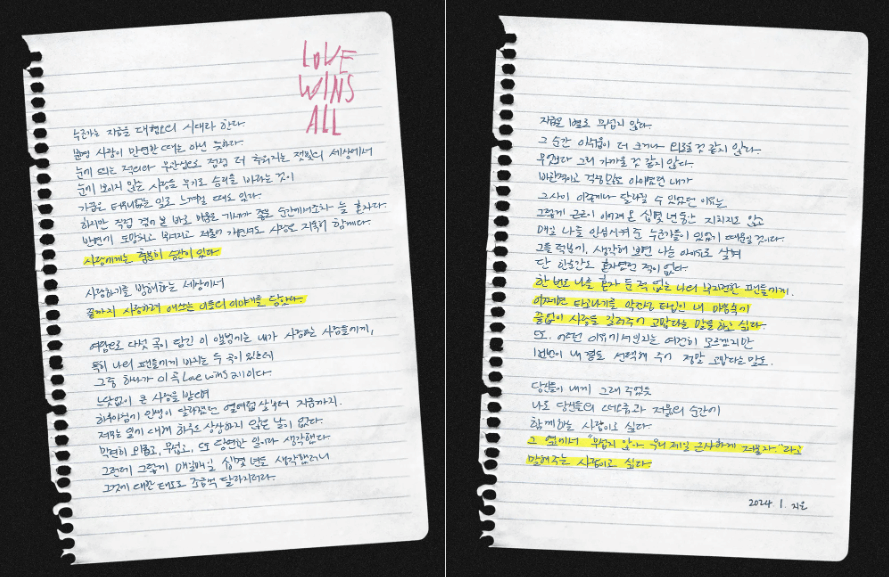 LOVE
WINS
ALL
누군가는 지금을 대혐오의 시대라 한다.
분명 사랑이 만연한 때는 아닌 듯하다.
눈에 띄는 적의와 무관심으로 점점 더 추워지는 잿빛의 세상에서
눈에 보이지 않는 사랑을 무기로 승리를 바라는 것이
가끔은 터무니없는 일로 느껴질 때도 있다.
하지만 직접 겪어 본 바로 미움은 기세가 좋은 순간에서조차 늘 혼자다.
반면에 도망치고 부서지고 저물어 가면서도 사랑은 지독히 함께다.
사랑에게는 충분히 승산이 있다.
사랑하기를 방해하는 세상에서
끝까지 사랑하려 애쓰는 이들의 이야기를 담았다.
여담으로 다섯 곡이 담긴 이 앨범에는 내가 사랑하는 사람들에게,
특히 나의 팬들에게 바치는 두 곡이 있는데
그중 하나가 이 곡 Love wins all이다.
느닷없이 큰 사랑을 받으며
하루아침에 인생이 달라졌던 열여덟 살부터 지금까지.
저무는 일에 대해 하루도 상상하지 않은 날이 없다.
막연히 외롭고, 무섭고, 또 당연한 일이라 생각했다.
그런데 그렇게 매일매일 십몇 년을 생각했더니
그것에 대한 태도도 조금씩 달라지더라.
지금은 별로 무섭지 않다.
그 순간 아쉬움이 더 크거나 외로울 것 같지 않다.
무엇보다 그리 가까울 것 같지 않다.
비관적이고 걱정 많은 아이였던 내가
그 사이 이렇게나 달라질 수 있었던 이유는
그렇게 근 십몇 년 동안 지치지도 않고
매일 나를 안심시켜 준 누군가들이 있었기 때문일 것이다.
그들 덕분에, 생각해 보면 나는 아이유로 살며
단 한순간도 혼자였던 적이 없다.
한 번도 나를 혼자 둔 적 없는 나의 부지런한 팬들에게.
어쩌면 타고나기를 악건성 타입인 내 마음속에
끊임없이 사랑을 길러주기 고맙다는 말을 하고 싶다.
또 어떤 이유에서인지는 여전히 모르겠지만
1번으로 내 곁을 선택해 주어 정말 고맙다는 말도.
당신들이 내게 그래 주었듯
나도 당신들의 떠오름과 저묾의 순간에
함께하는 사람이고 싶다.
그 옆에서 "무섭지 않아. 우리 제일 근사하게 저물자."라고
말해주는 사람이고 싶다.
2024. 1. 지은